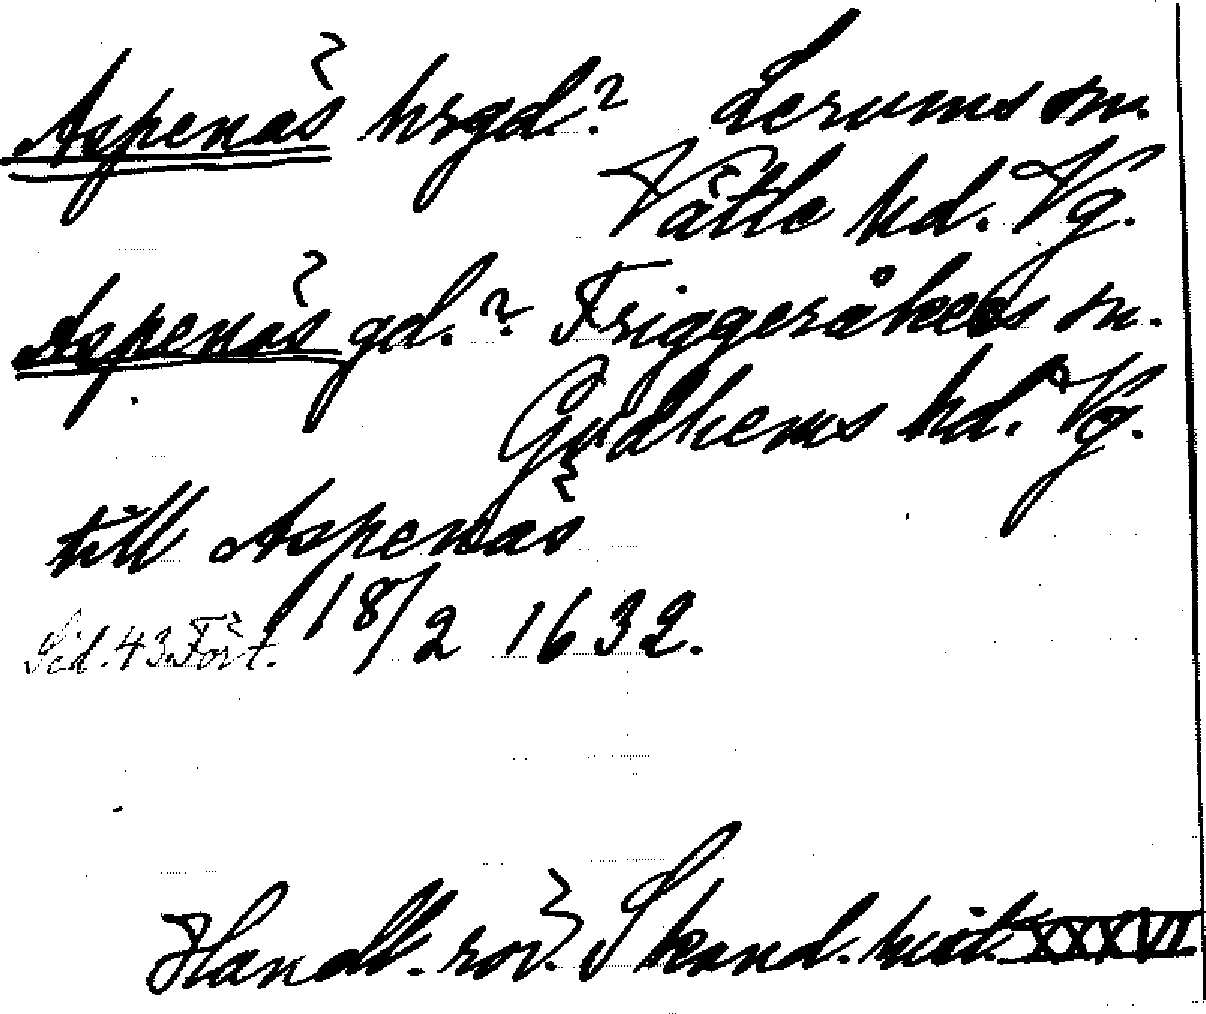 Aspenäs hrgd? Lerums sn.
Vättle hd. Vg.
Aspenäs gd.? Friggeråkers sn.
Gudhems hd. Vg.
till Aspenäs
Sid. 43. Fört. 18/2 1632.
Handl. rör. Skand. hist. XXXVI